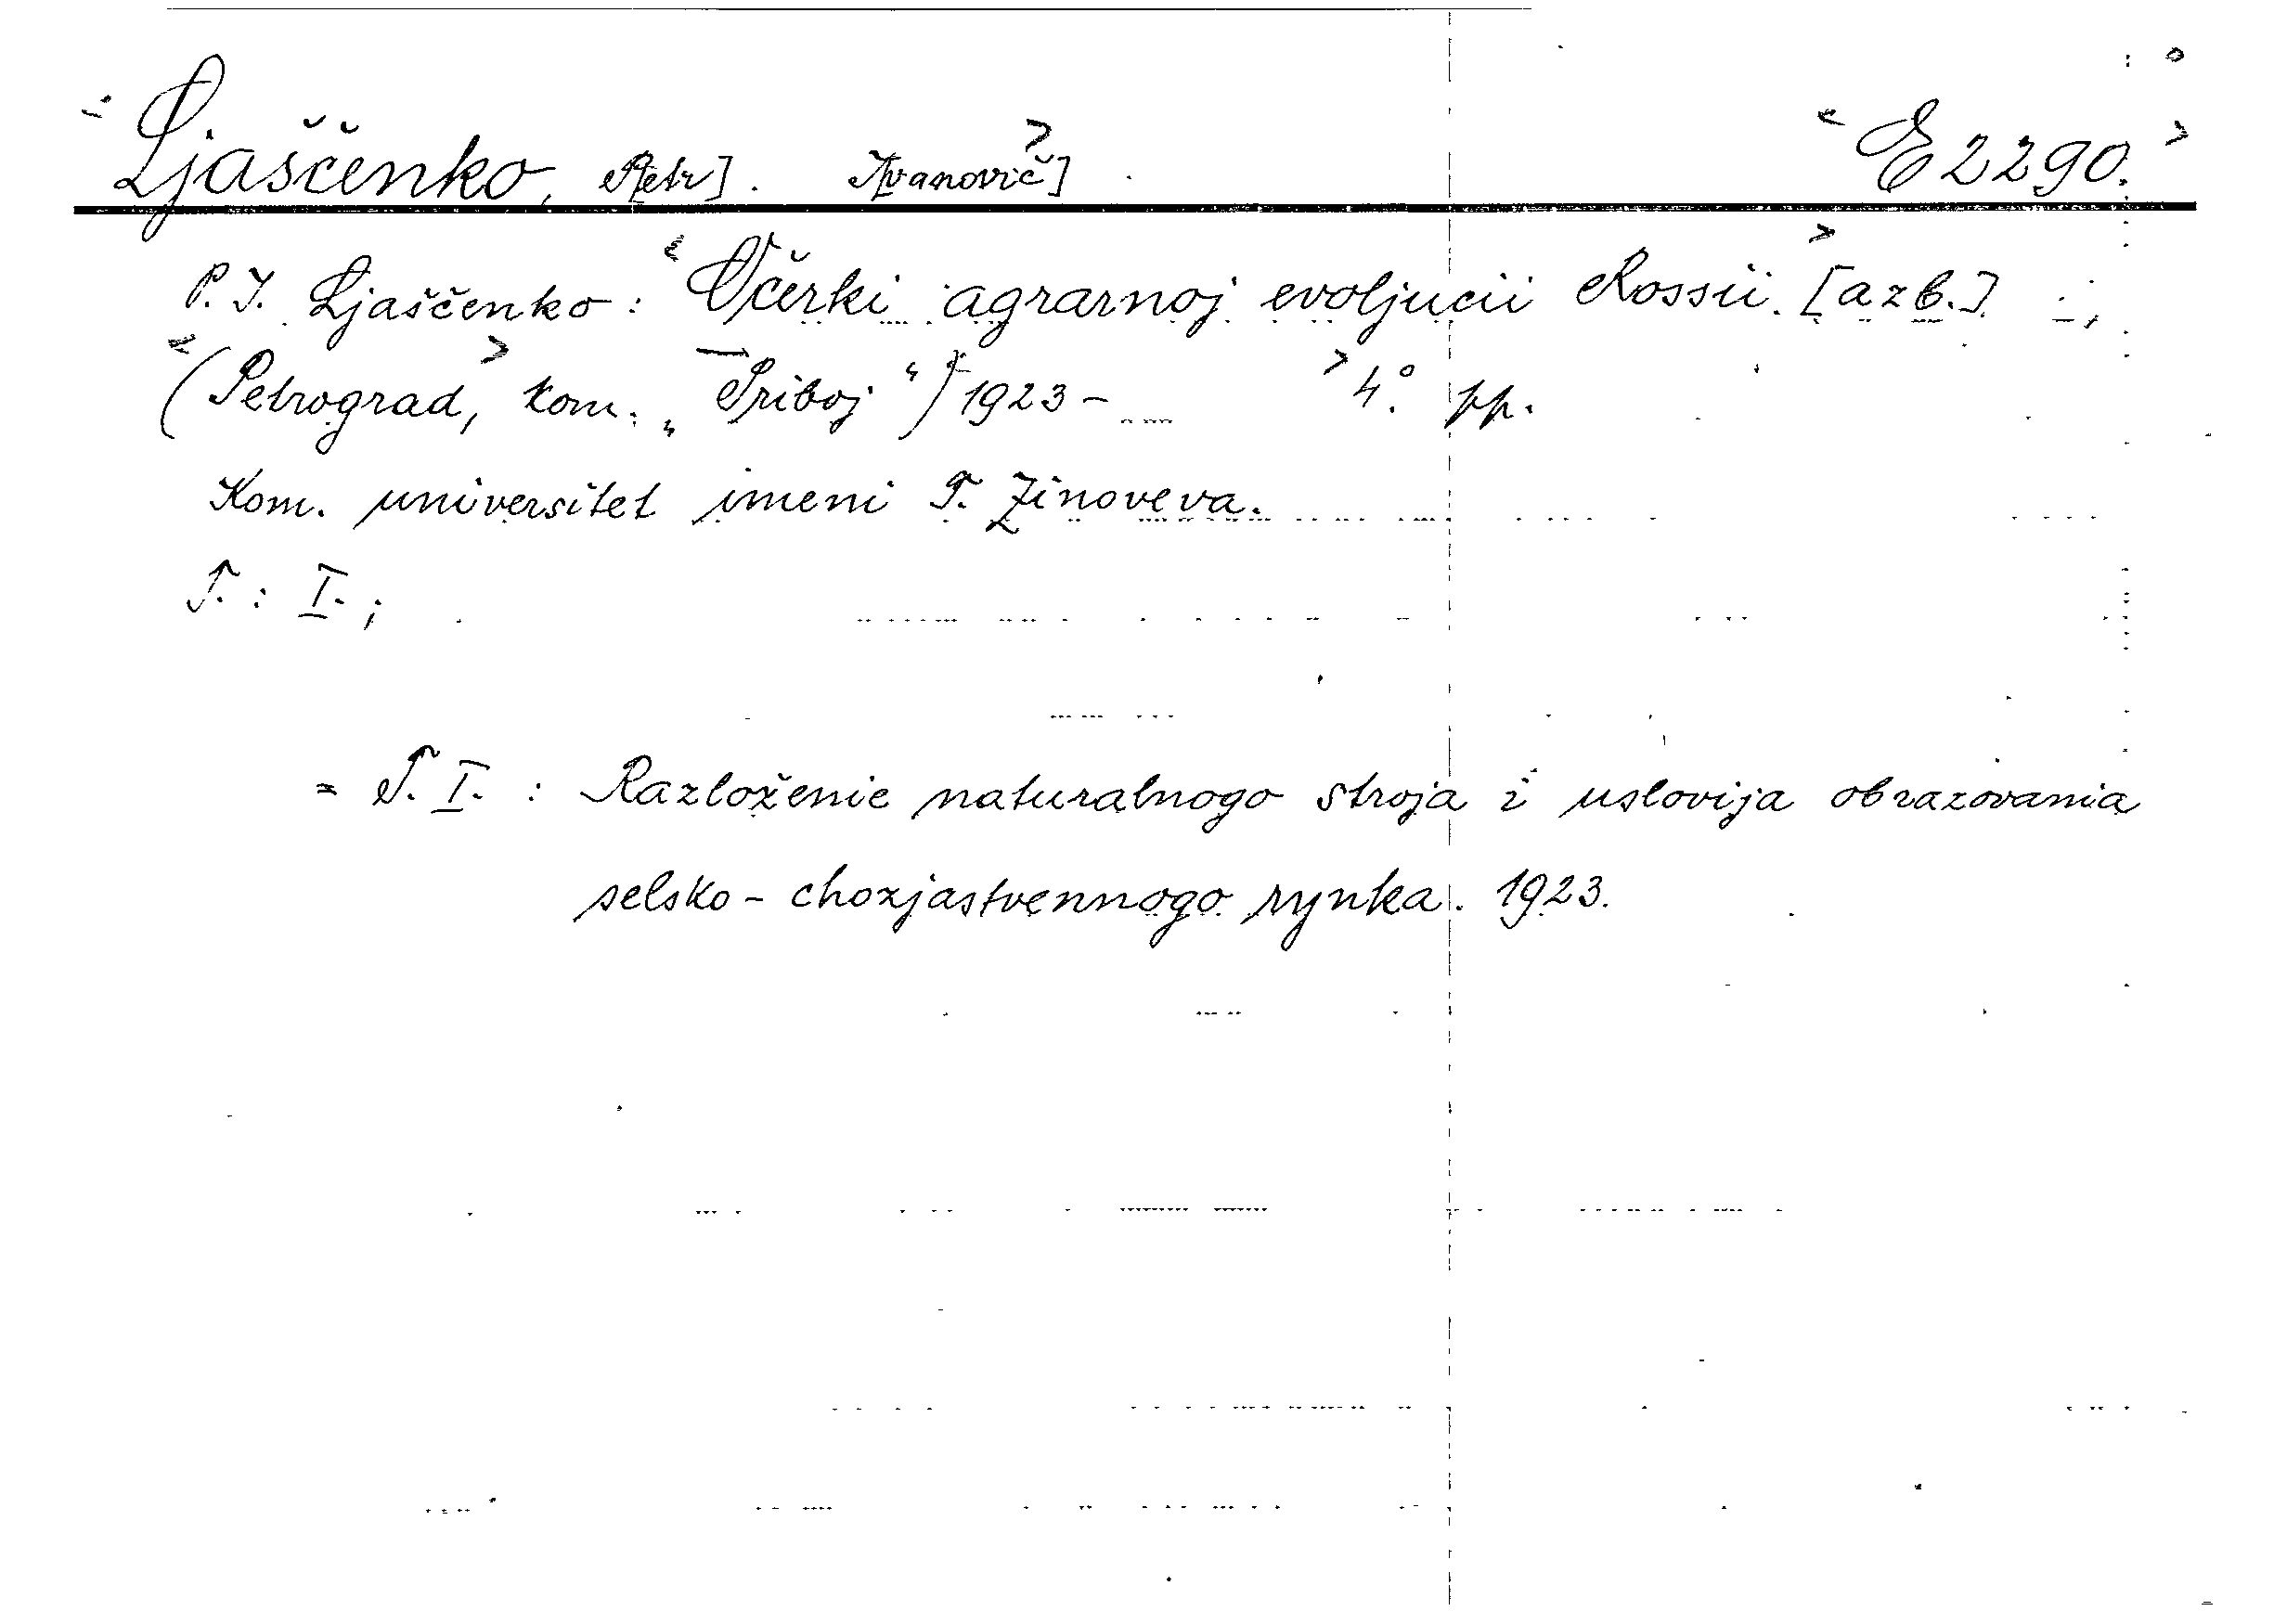 Ljaščenko, P[etr]. I[vanovič] E 2290.
P. I. Ljaščenko: Očerki agrarnoj evoljucii Rossii. [azb.] I.,
(Petrograd, kom. „Priboj“) 1923- 4°. pp.
Kom. universitet imeni T. Zinoveva.
T. : I. ;
= T. I. : Razloženie naturalnogo stroja i uslovija obrazovania
selsko-chozjastvennogo rynka. 1923.